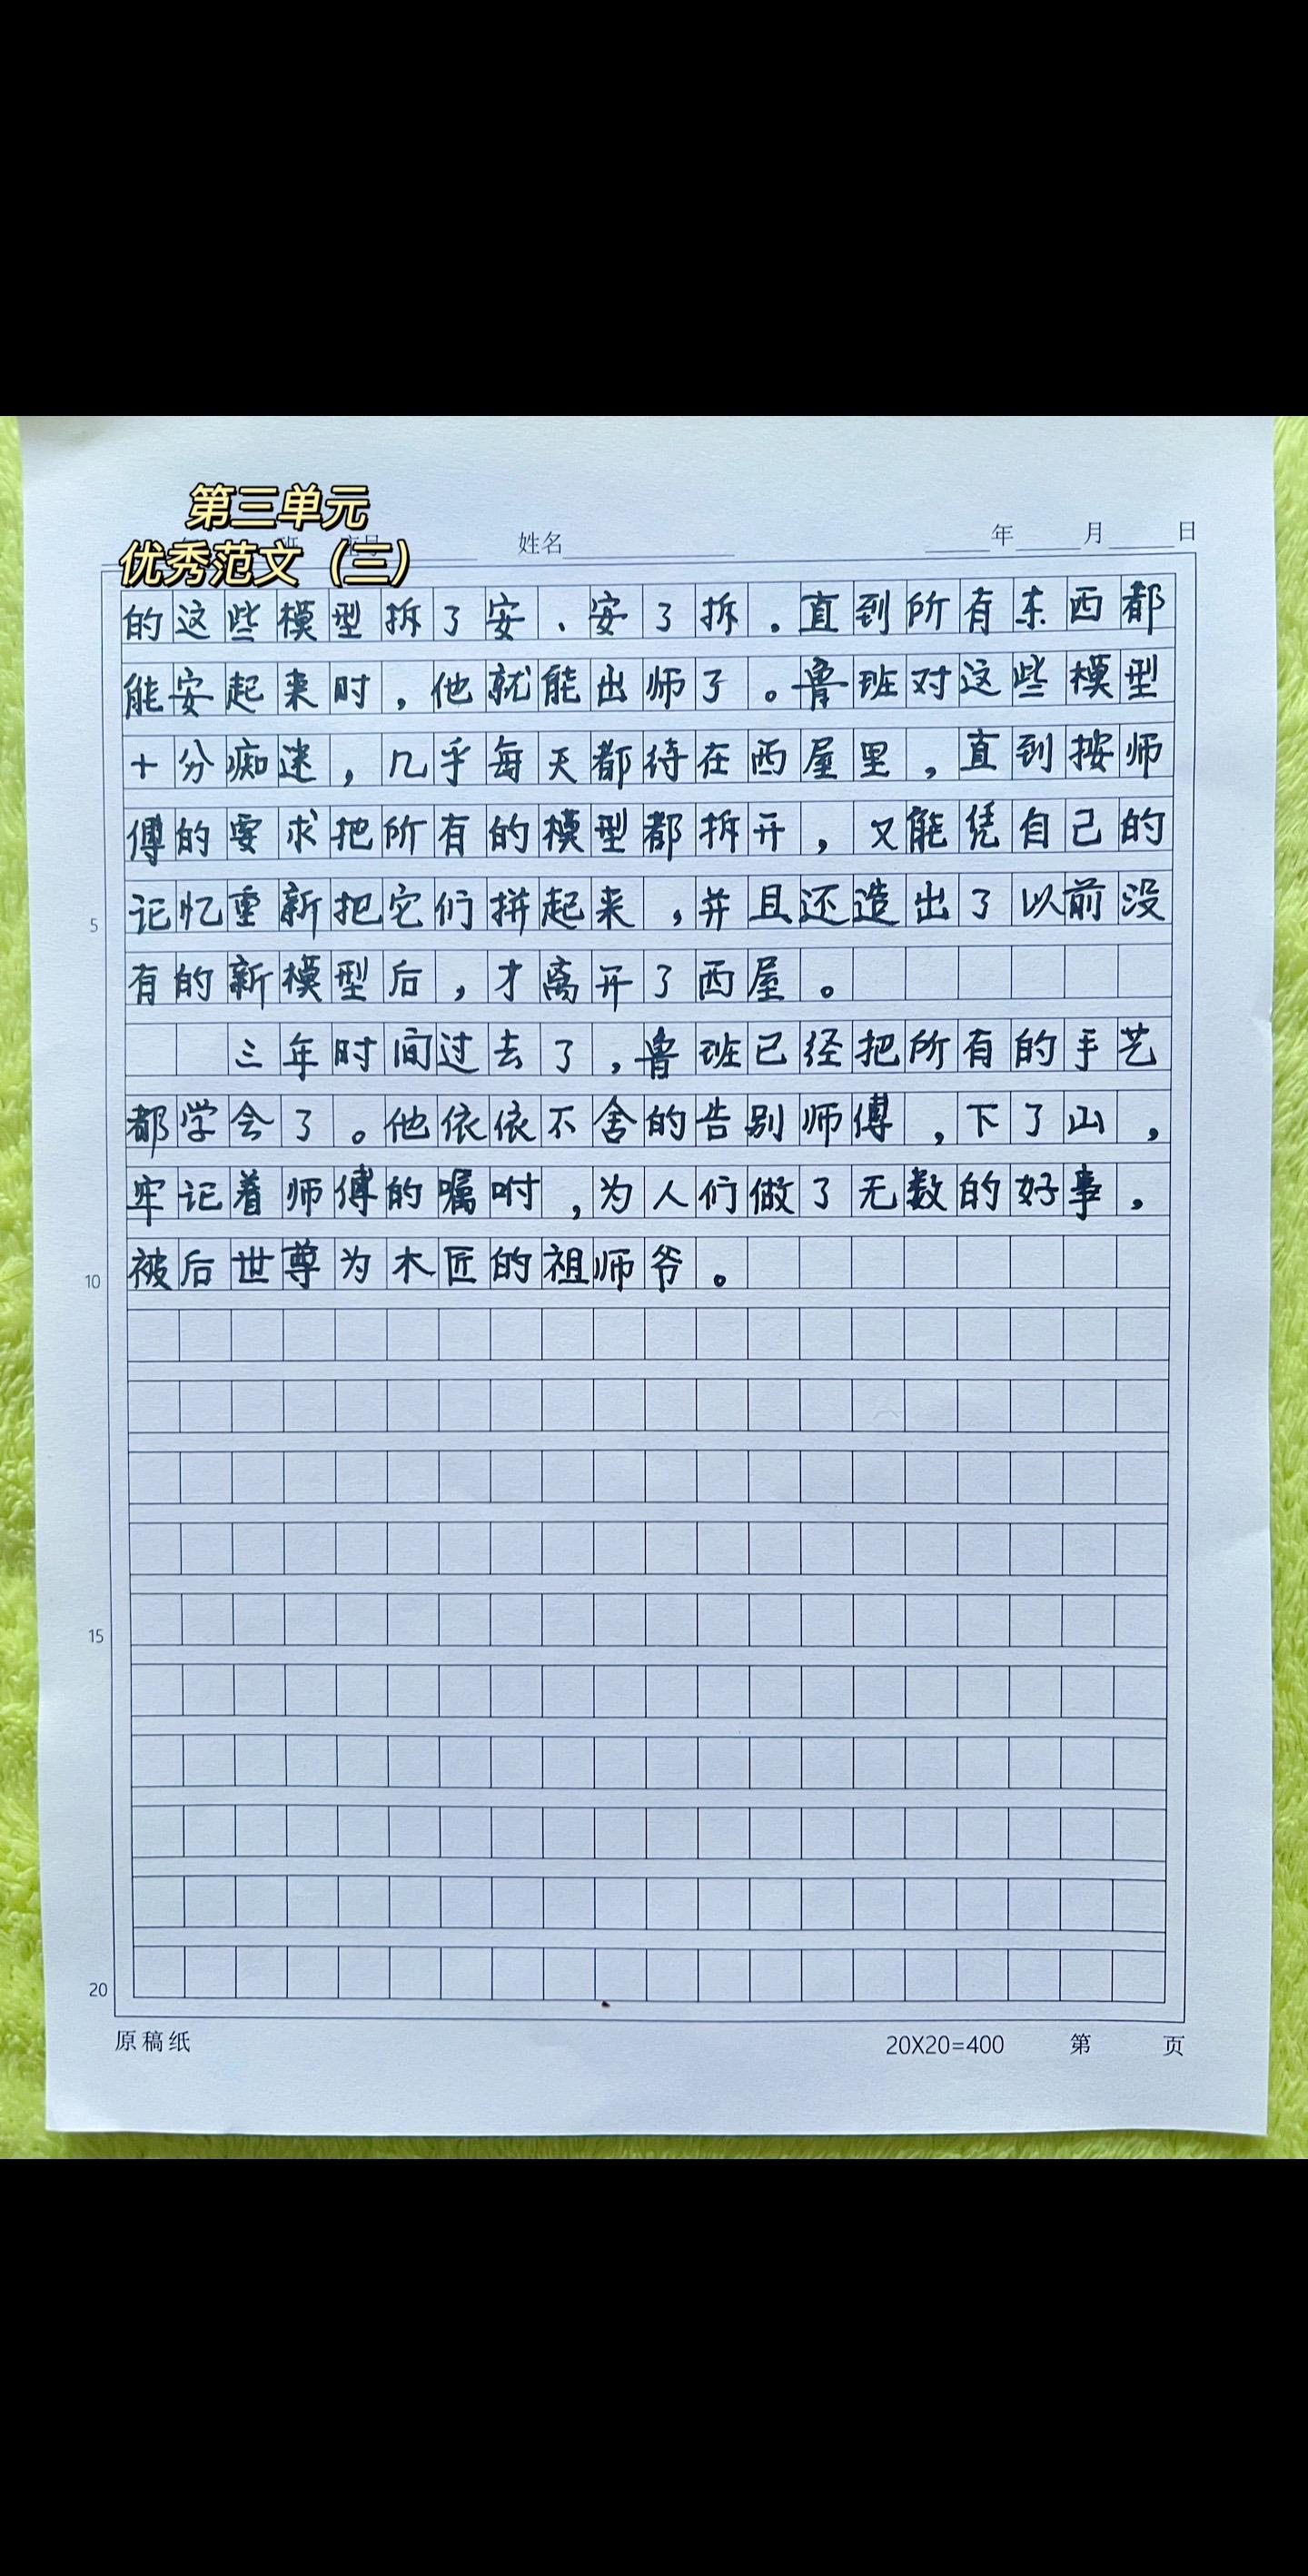 第三单元
优秀范文（三）
姓名 年 月 日
的这些模型拆了安、安了拆.直到所有东西都
能安起来时,他就能出师了。鲁班对这些模型
十分痴迷,几乎每天都待在西屋里,直到按师
傅的要求把所有的模型都拆开,又能凭自己的
5 记忆重新把它们拼起来,并且还造出了以前没
有的新模型后,才离开了西屋。
三年时间过去了,鲁班已经把所有的手艺
都学会了。他依依不舍的告别师傅,下了山,
牢记着师傅的嘱咐,为人们做了无数的好事,
10 被后世尊为木匠的祖师爷。
15
20
原稿纸 20X20=400 第 页